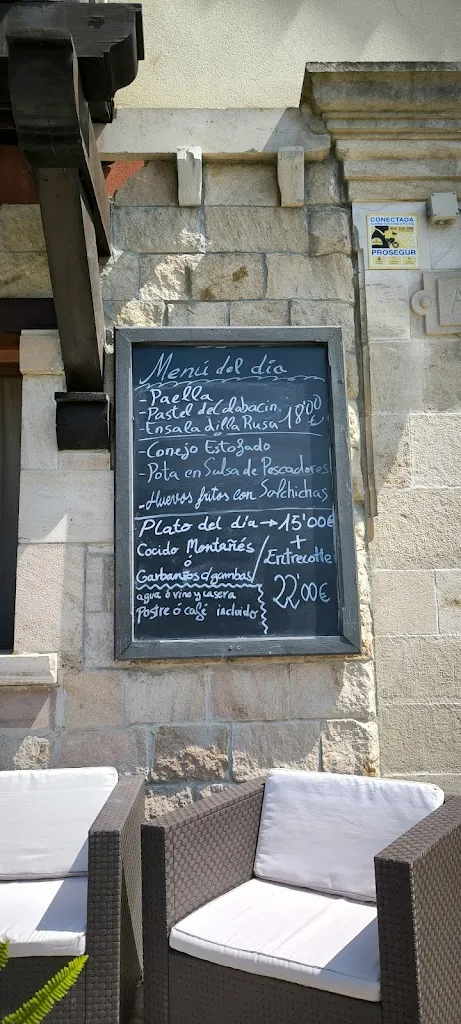 CONECTADA
PROSEGUR
Menú del día
- Paella
- Pastel del Calabacin
- Ensaladilla Rusa 18'00
- Conejo Estofado
- Pota en Salsa de Pescadores
- Huevos fritos con Salchichas
Plato del día → 15'00€
Cocido Montañés
ó
Garbanzos c/gambas
+
Entrecotte
22'00€
agua ó vino y casera
Postre ó café incluido